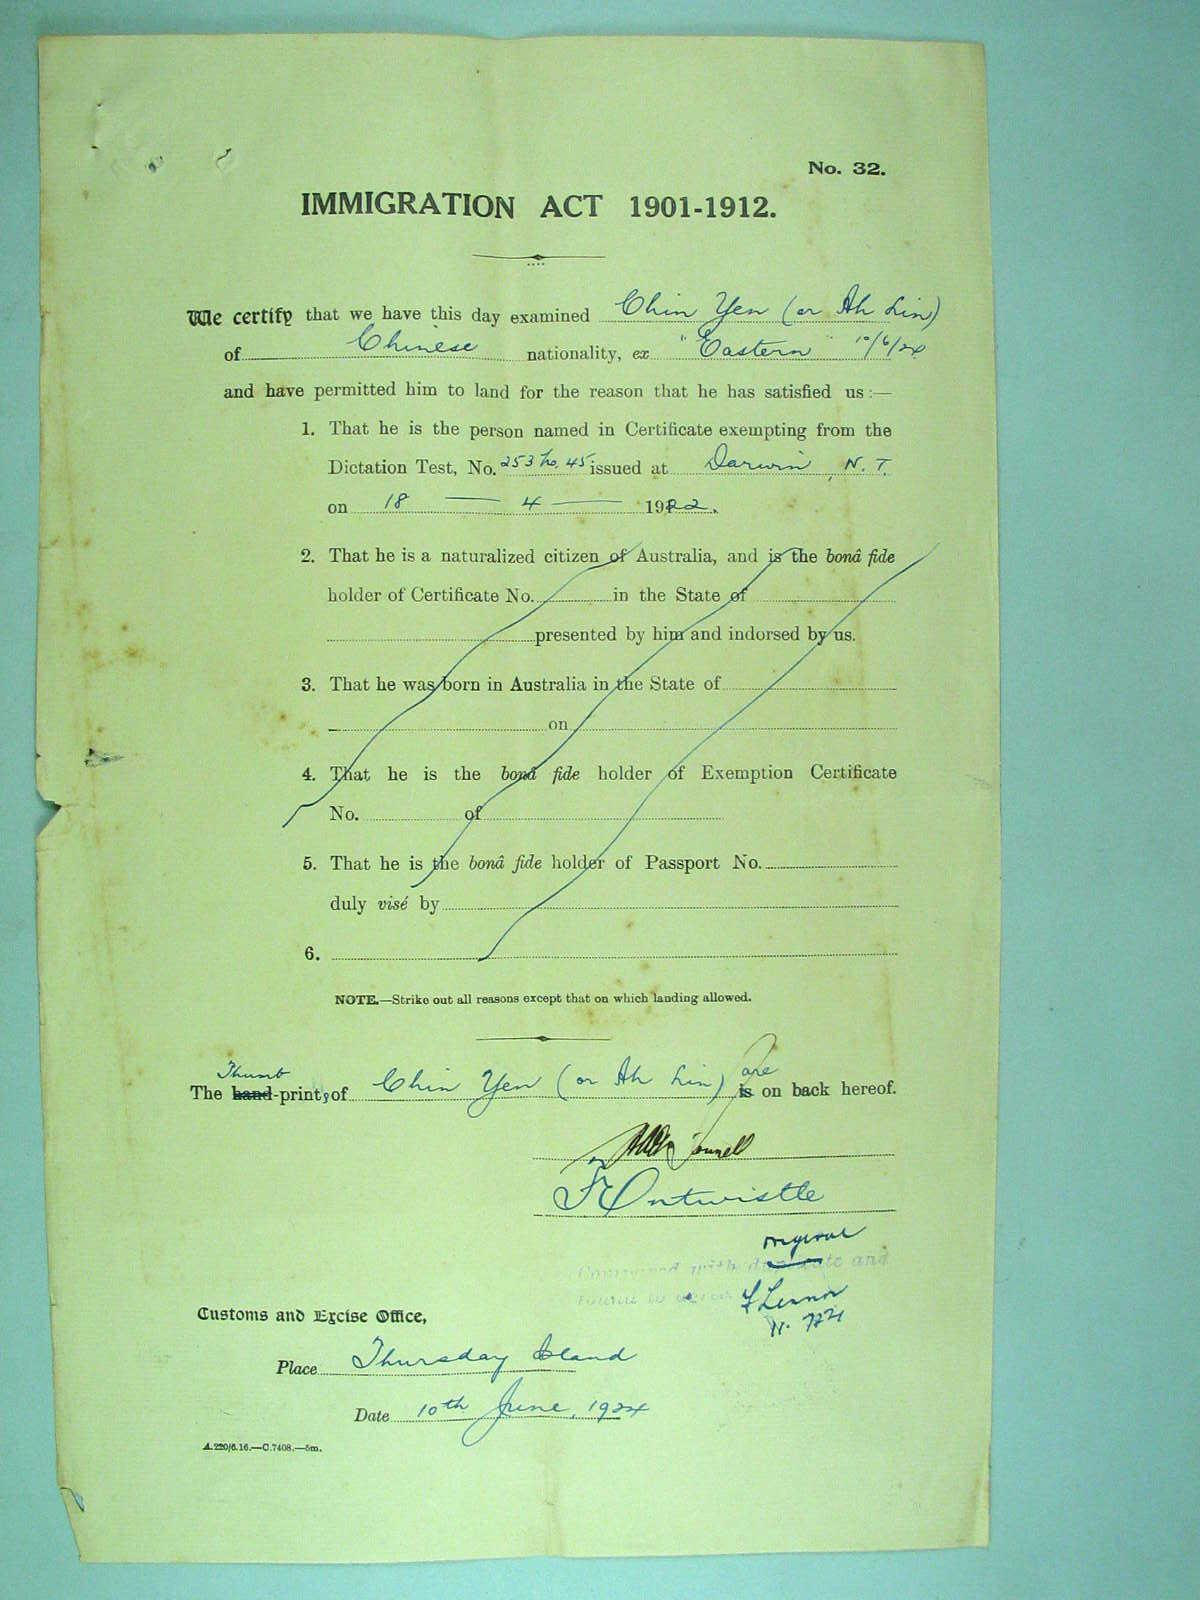 No. 32.
IMMIGRATION ACT 1901-1912.
We certify that we have this day examined Chin Yen (or Ah Lin)
of Chinese nationality, ex "Eastern" 10/6/24
and have permitted him to land for the reason that he has satisfied us:—
1. That he is the person named in Certificate exempting from the
Dictation Test, No. 253 45 issued at Darwin, N. T.
on 18 — 4 — 1922.
2. That he is a naturalized citizen of Australia, and is the bonâ fide
holder of Certificate No. in the State of
presented by him and indorsed by us.
3. That he was born in Australia in the State of
on
4. That he is the bonâ fide holder of Exemption Certificate
No. of
5. That he is the bonâ fide holder of Passport No.
duly visé by
6.
NOTE.—Strike out all reasons except that on which landing allowed.
Thumb are
The hand-prints of Chin Yen (or Ah Lin) is on back hereof.
F Entwistle
original
Compared with duplicate and
found to
F Lennox
Customs and Excise Office,
Place Thursday Island
Date 10th June, 1924
A.220/6.16.—C.7408.—5m.